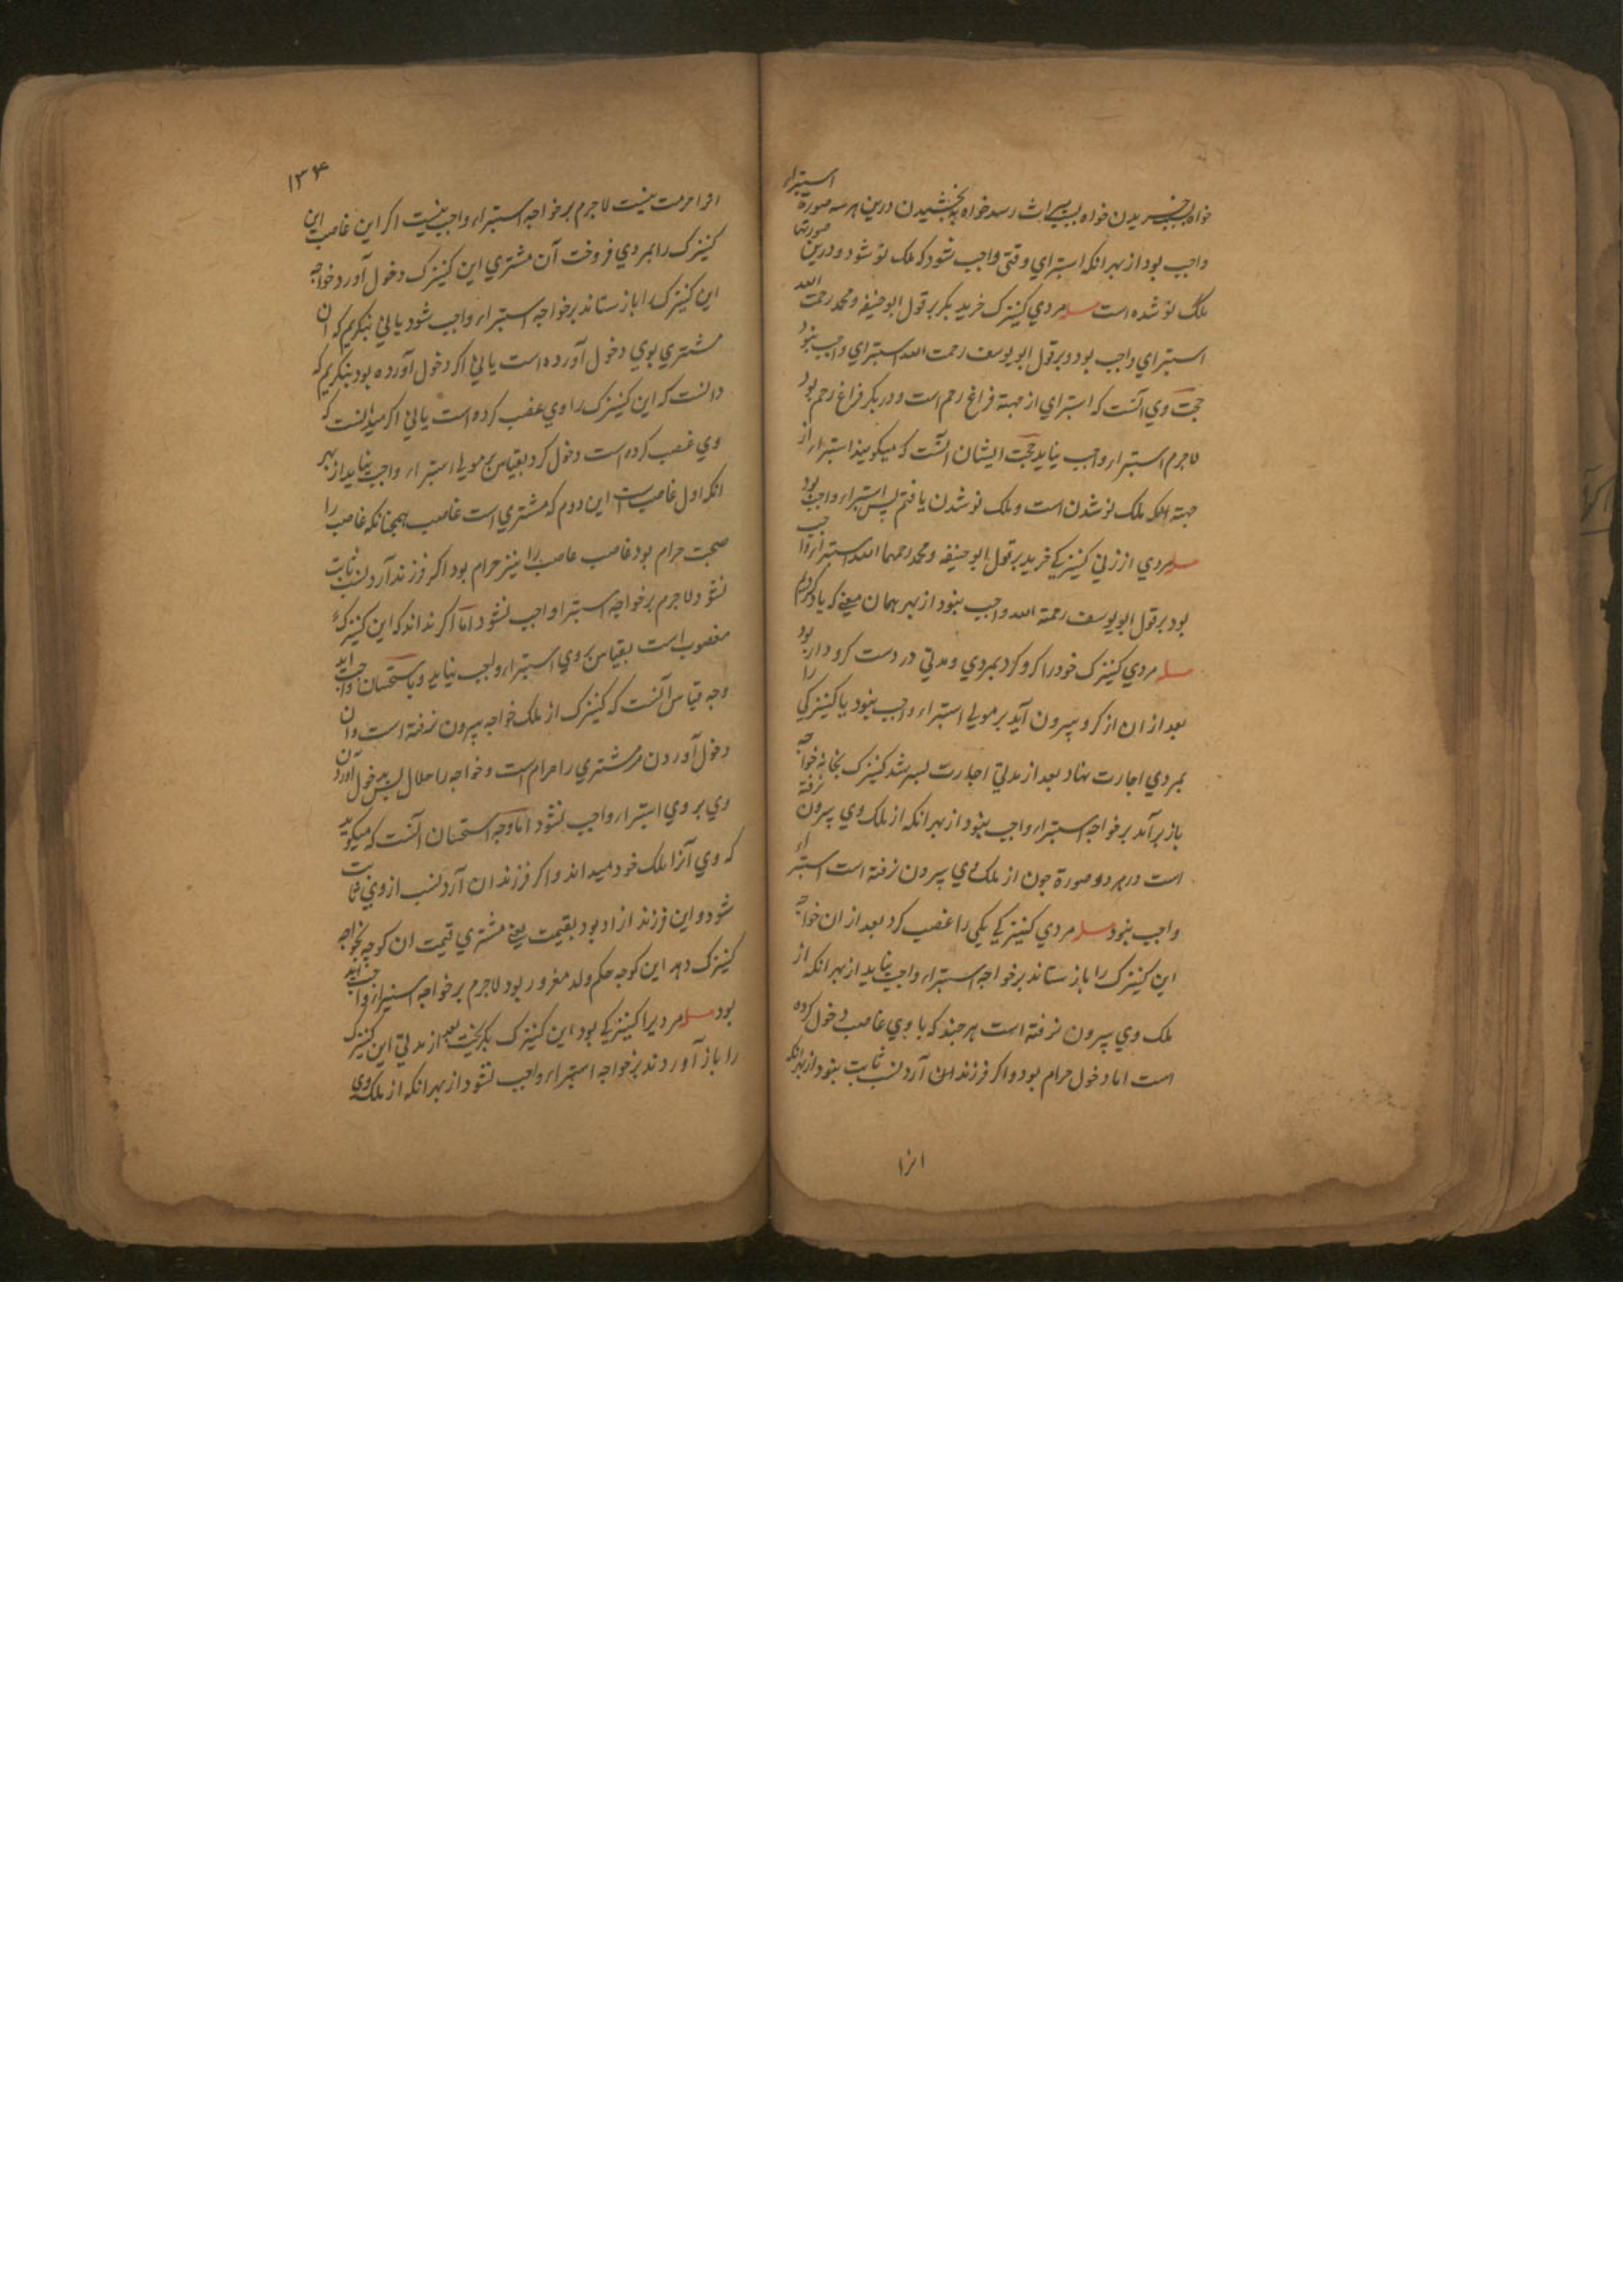 خواه بخریدن خواه بمیراث رسد خواه به بخشیدن درین هر سه صورة استبراء
واجب بود از بهر انکه استبرای وقتی واجب شود که ملک نو شود و درین صورتها
ملک نو شده است مسله مردي کنیزک خرید بکر بر قول ابو حنیفه و محمد رحمت الله
استبراي واجب بود و بر قول ابو یوسف رحمت الله استبراي واجب نبود
حجت وي آنست که استبراي از جهة فراغ رحم است و در بکر فراغ رحم بود
لاجرم استبراء واجب نیاید حجت ایشان آنست که میکویند استبراء از
جهة انکه ملک نو شدن است و ملک نو شدن یافتم پس استبراء واجب بود
مسله مردي از زني کنیزکے خرید بر قول ابو حنیفه و محمد رحمهما الله استبراء واجب
بود بر قول ابو یوسف رحمة الله واجب نبود از بهر همان معنے که یاد کردیم
مسله مردي کنیزک خود را کرو کرد بمردي و مدتي در دست کرو دار بود
بعد از ان از کرو بیرون آید بر مولے استبراء واجب نبود یا کنیزکي را
بمردي اجارت نهاد بعد از مدتي اجارت بسر شد کنیزک بخانه خواجه
باز بر آمد بر خواجه استبراء واجب نبود از بهر انکه از ملک وي بیرون نرفته
است در هر دو صورة چون از ملک وي بیرون نرفته است استبراء
واجب نبود مسله مردي کنیزکے یکي را غصب کرد بعد از ان خواجه
این کنیزک را باز ستاند بر خواجه استبراء واجب نیاید از بهر انکه از
ملک وي بیرون نرفته است هر چند که با وي غاصب دخول کرده
است اما دخول حرام بود و اکر فرزند ان آرد نسب ثابت نبود از بهر انکه
انرا
۱۳۴
انرا حرمت نیست لاجرم بر خواجه استبراء واجب نیست اکر این غاصب این
کنیزک را بمردي فروخت آن مشتري این کنیزک دخول آورد خواجه
این کنیزک را باز ستاند بر خواجه استبراء واجب شود یا نے بنکریم که ان
مشتري بوي دخول آورده است یا نے اکر دخول آورده بود بنکریم که
دانست که این کنیزک را وي غصب کرده است یا نے اکر میدانست که
وي غصب کرده است دخول کرد بقیاس بر مولے استبراء واجب نیاید از بهر
انکه اول غاصب است این دوم که مشتري است غاصب همچنانکه غاصب را
صحبت حرام بود غاصب غاصب را نیز حرام بود اکر فرزند آرد نسب ثابت
نشود لاجرم بر خواجه استبراء واجب نشود اما اکر نداند که این کنیزک
مغصوب است بقیاس بر وي استبراء واجب نیاید و باستحسان واجب اید
وجه قیاس آنست که کنیزک از ملک خواجه بیرون نرفته است و ان
دخول آوردن مر مشتري را حرام است و خواجه را حلال پس بدخول آوردن
وي بر وي استبراء واجب نشود اما وجه استحسان آنست که میکوید
که وي آنرا ملک خود میداند و اکر فرزند ان آرد نسب از وي ثابت
شود و این فرزند ازاد بود بقیمت یعنے مشتري قیمت ان کوچه بخواجه
کنیزک دهد این کوچه حکم ولد مغرور بود لاجرم بر خواجه استبراء واجب آید
بود مسله مردیرا کنیزکے بود این کنیزک بکریخت بعد از مدتي این کنیزک
را باز آوردند بر خواجه استبراء واجب نشود از بهر انکه از ملک وي